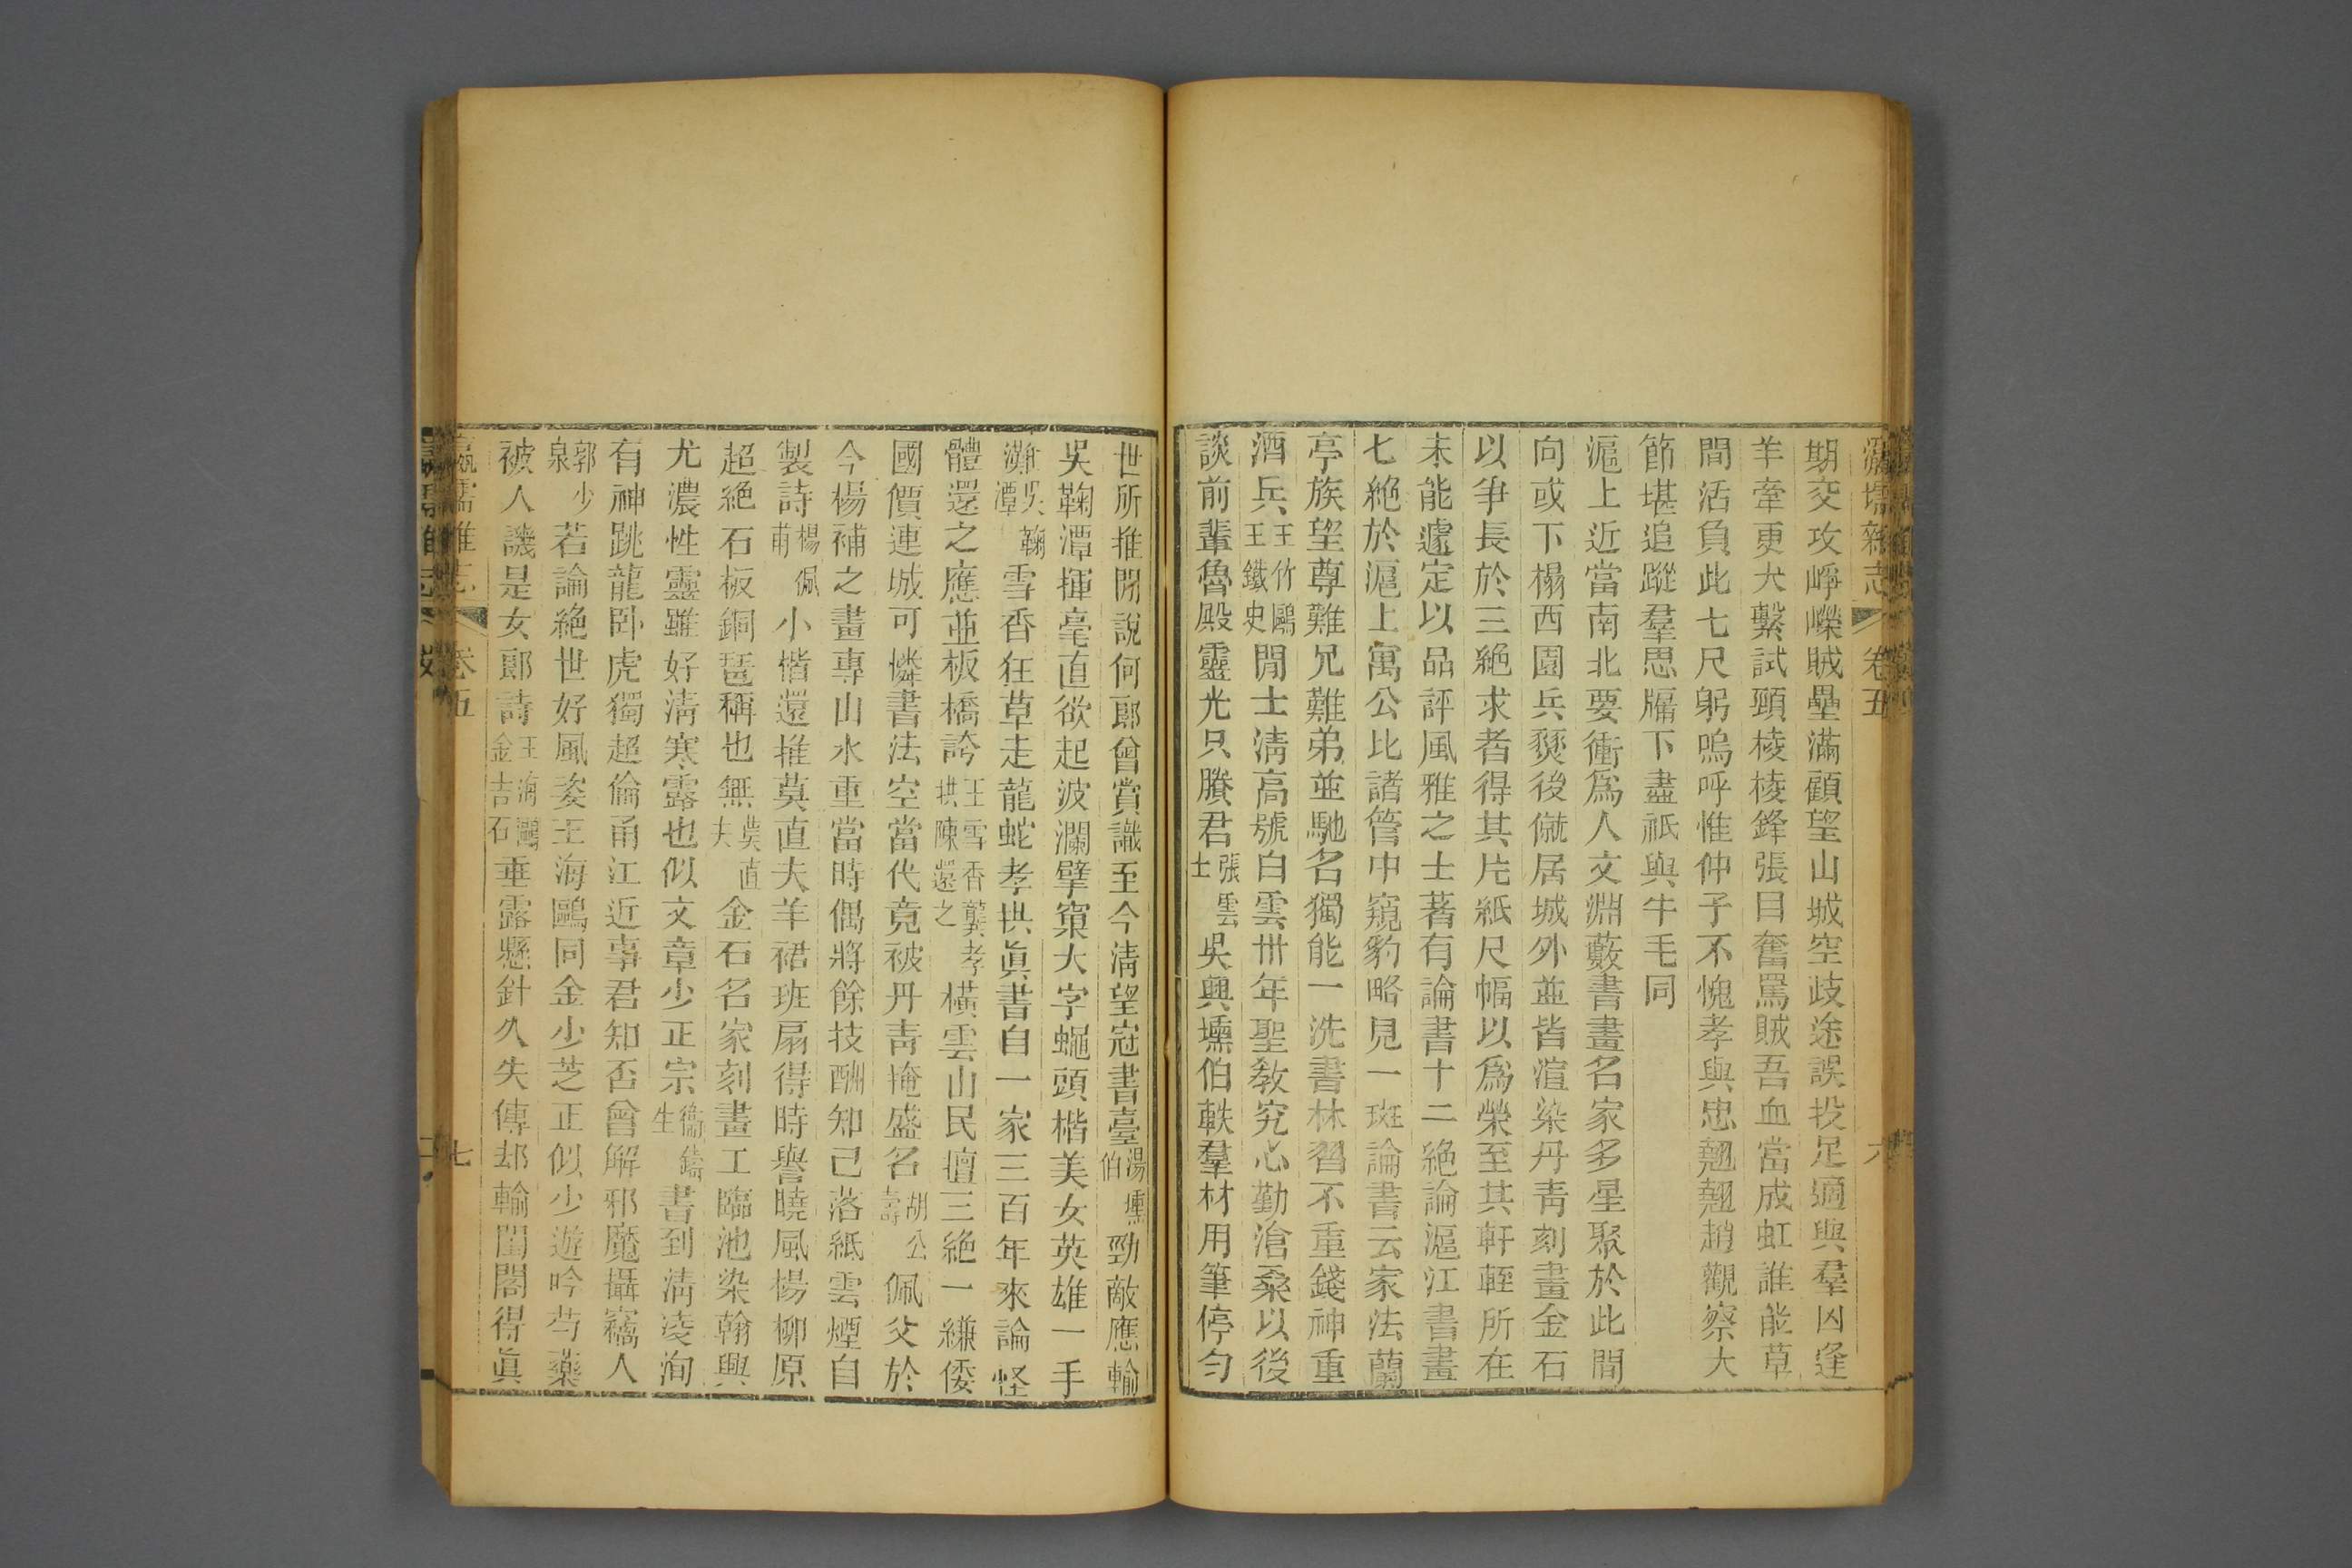 瀛壖雜志 卷五 六
期交攻崢嶸賊壘滿顧望山城空歧途誤投足適與羣凶逢
羊牽更犬繫試頸棱棱鋒張目奮罵賊吾血當成虹誰能草
間活負此七尺躬嗚呼惟仲子不愧孝與忠翹翹趙觀察大
節堪追蹤羣思牖下盡祇與牛毛同
滬上近當南北要衝爲人文淵藪書畫名家多星聚於此間
向或下榻西園兵燹後僦居城外並皆渲染丹青刻畫金石
以爭長於三絕求者得其片紙尺幅以爲榮至其軒輊所在
未能遽定以品評風雅之士著有論書十二絕論滬江書畫
七絕於滬上寓公比諸管中窺豹略見一斑論書云家法蘭
亭族望尊難兄難弟並馳名獨能一洗書林習不重錢神重
酒兵王竹鷗王鐵史閒士清高號白雲卅年聖敎究心勤滄桑以後
談前輩魯殿靈光只賸君張雲士吳興壎伯軼羣材用筆停勻
世所推聞說何郎曾賞識至今清望冠書臺湯壎伯勁敵應輸
吳鞠潭揮毫直欲起波瀾擘窠大字蠅頭楷美女英雄一手
難吳鞠潭雪香狂草走龍蛇孝拱眞書自一家三百年來論怪
體還之應並板橋誇王雪香龔孝拱陳還之橫雲山民擅三絕一縑倭
國價連城可憐書法空當代竟被丹青掩盛名胡公壽佩父於
今楊補之畫專山水重當時偶將餘技酬知己落紙雲煙自
製詩楊佩甫小楷還推莫直夫羊裙班扇得時譽曉風楊柳原
超絕石板銅琶稱也無莫直夫金石名家刻畫工臨池染翰興
尤濃性靈雖好清寒露也似文章少正宗衞鑄生書到清凌洵
有神跳龍臥虎獨超倫甬江近事君知否曾解邪魔攝窩人
郭少泉若論絕世好風姿王海鷗同金少芝正似少遊吟芍藥
被人譏是女郎詩王海鷗金吉石垂露懸針久失傳却輸閨閣得眞
瀛壖雜志 卷五 七